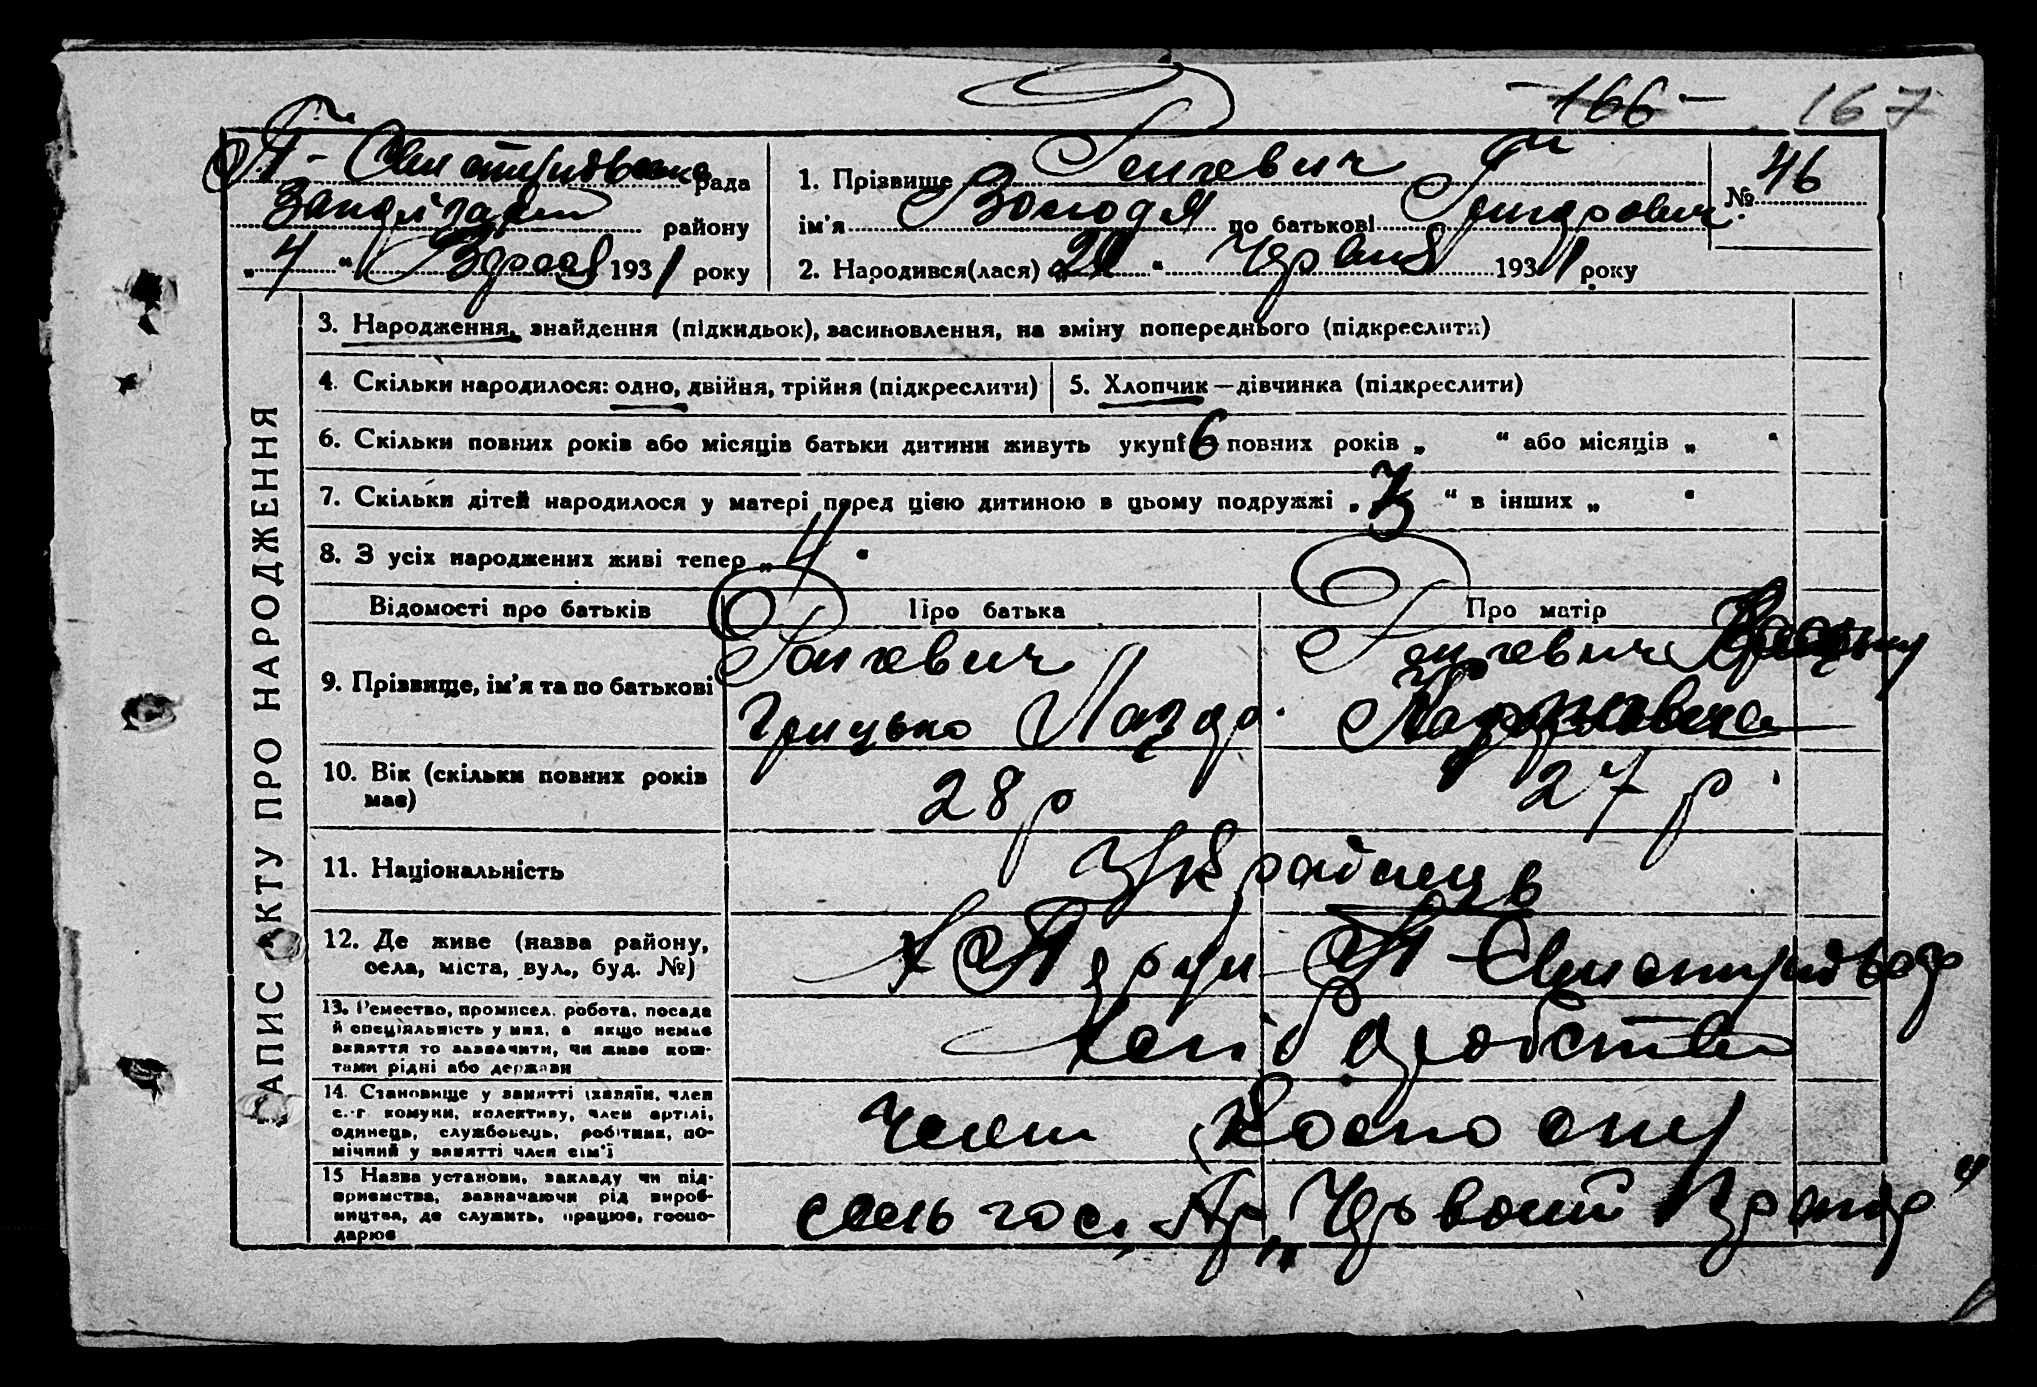 166 167
рада
району
„4“ 1931 року
1. Прізвище
ім'я Володя по батькові
№ 46
2. Народився(лася) „21“ Червня 1931 року
ЗАПИС АКТУ ПРО НАРОДЖЕННЯ
3. Народження, знайдення (підкидьок), засиновлення, на зміну попереднього (підкреслити)
4. Скільки народилося: одно, двійня, трійня (підкреслити)
5. Хлопчик — дівчинка (підкреслити)
6. Скільки повних років або місяців батьки дитини живуть укупі 6 повних років „ “ або місяців „ “
7. Скільки дітей народилося у матері перед цією дитиною в цьому подружжі „3“ в інших „ “
8. З усіх народжених живі тепер „4“
Відомості про батьків
Про батька
Про матір
9. Прізвище, ім'я та по батькові
Грицько Лазар.
10. Вік (скільки повних років має)
28 р
27 р
11. Національність
Українець
12. Де живе (назва району, села, міста, вул., буд. №)
13. Ремество, промисел, робота, посада й спеціяльність у них, а якщо немає заняття то зазначити, чи живе коштами рідні або держави
Хліборобство
14. Становище у занятті (хазяїн, член с.-г комуни, колективу, член артілі, одинець, службовець, робітник, помічний у занятті член сім'ї
член колгоспу
15 Назва установи, закладу чи підприємства, зазначаючи рід виробництва, де служить, працює, господарює
сельгос. Ар „Червоний Прапор“